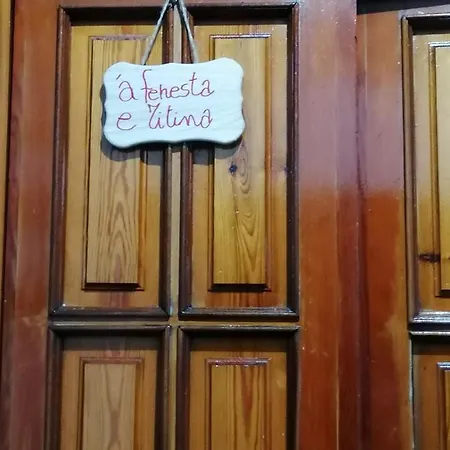 'a fenesta
e Titina